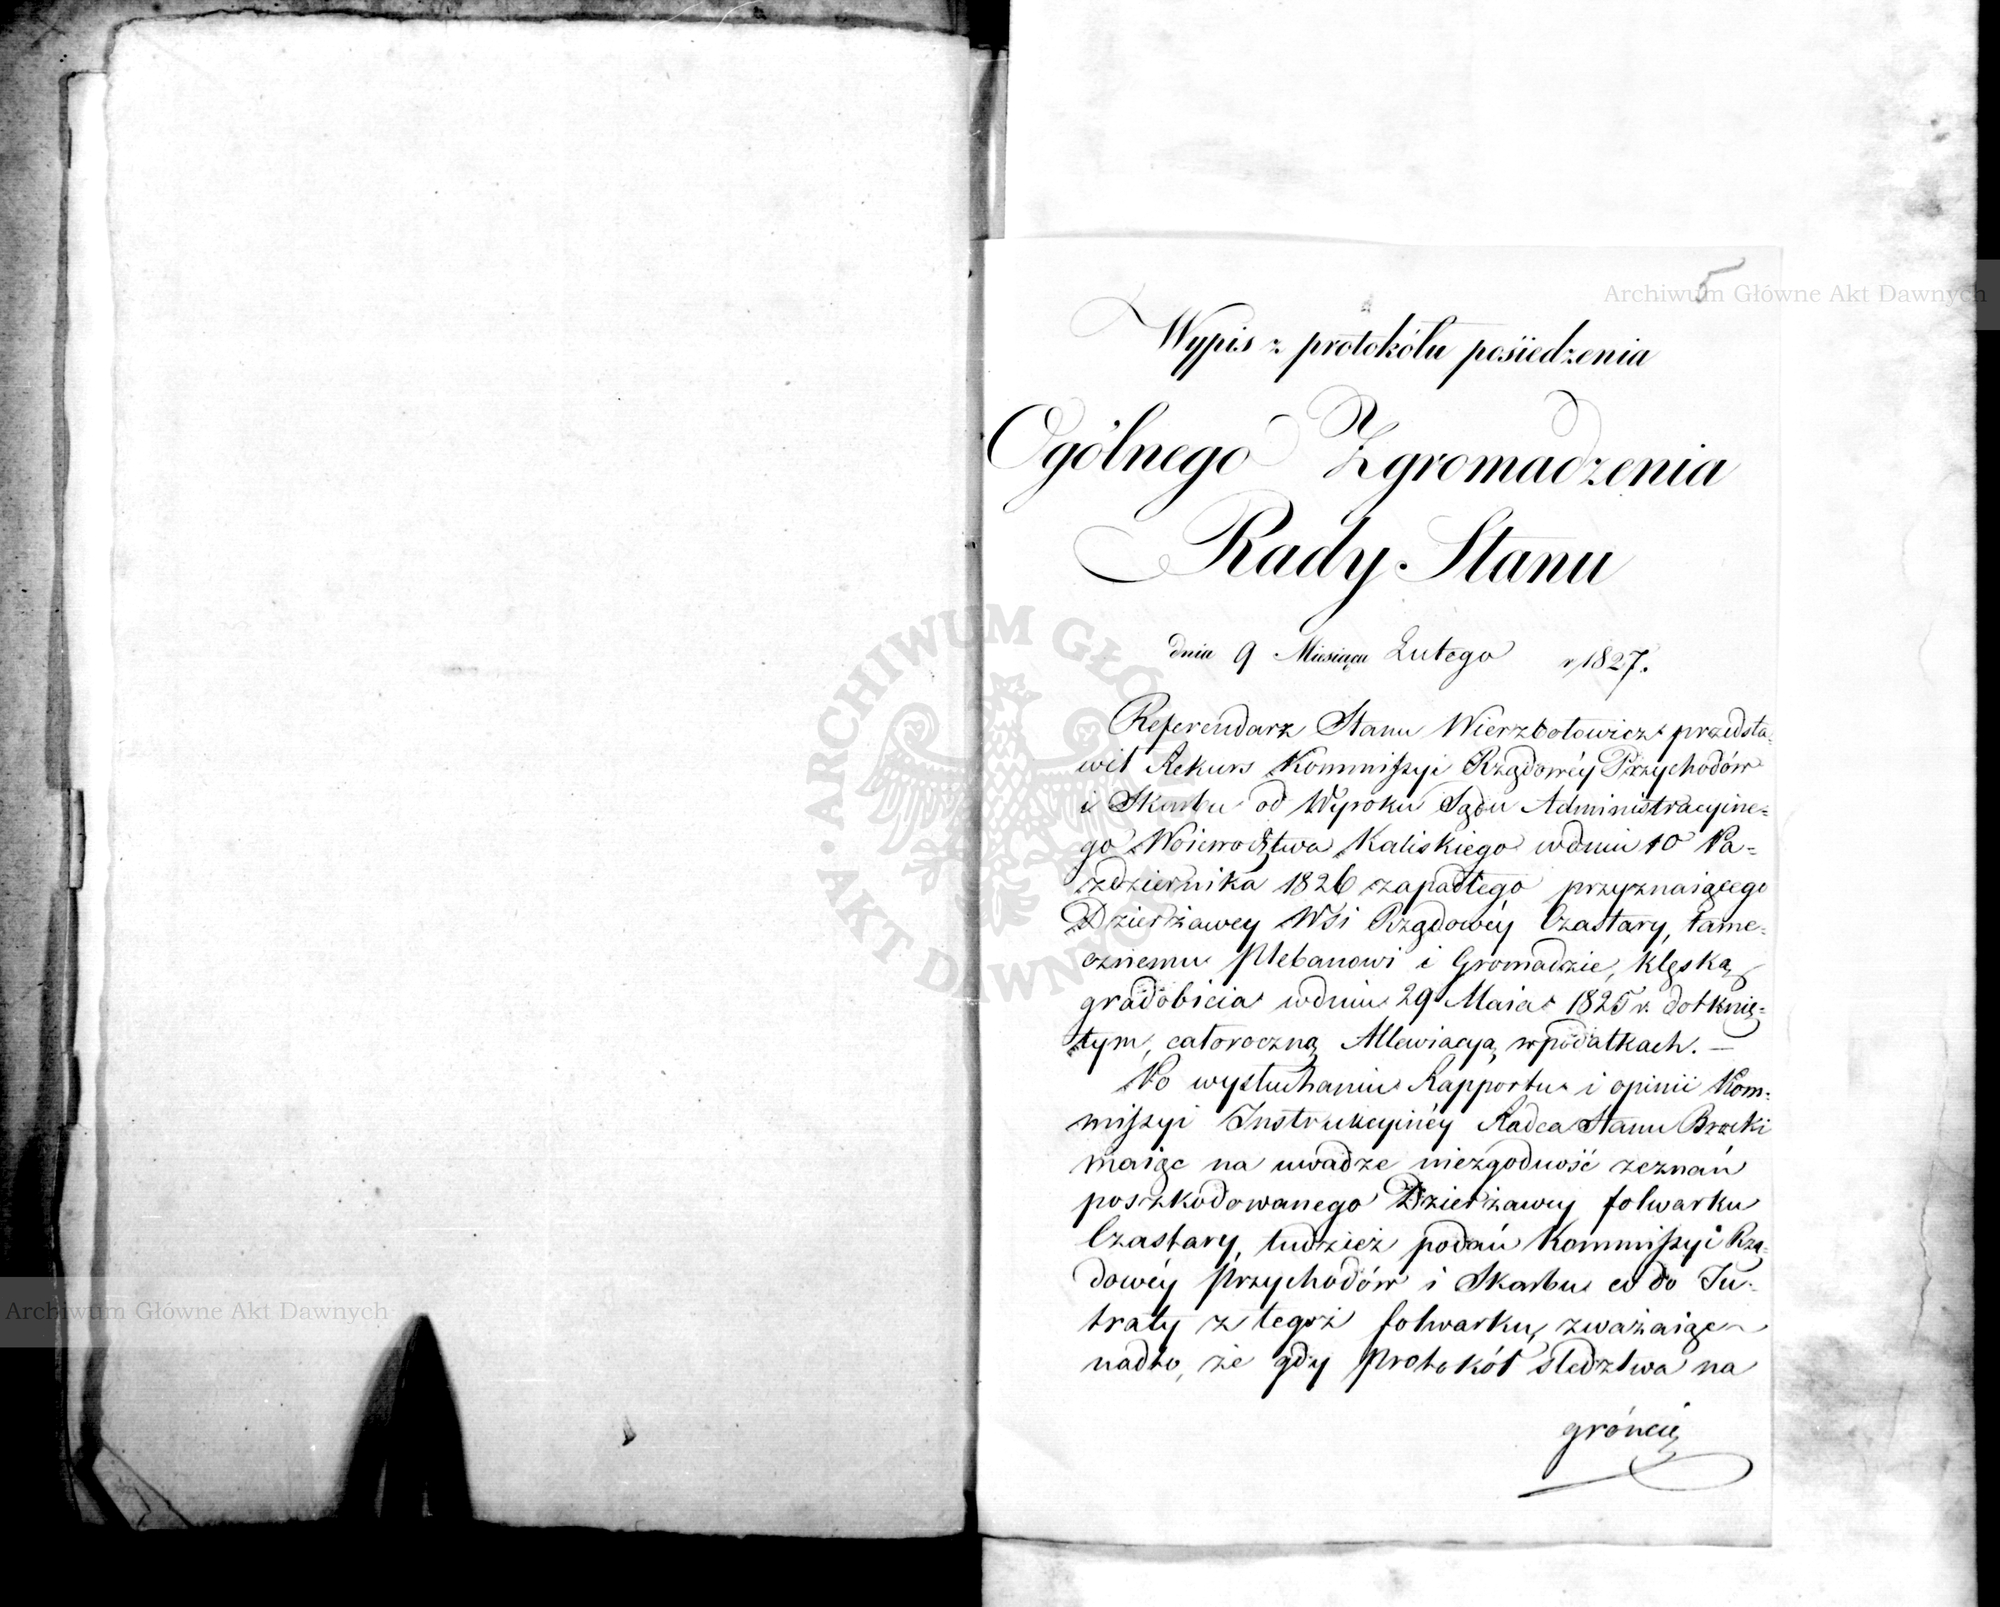 5
Archiwum Główne Akt Dawnych
Wypis z protokółu posiedzenia
Ogólnego Zgromadzenia
Rady Stanu
dnia 9 Miesiąca Lutego r. 1827.
Referendarz Stanu Wierzbołowicz przedsta-
wił Rekurs Kommissyi Rządowéy Przychodów
i Skarbu od Wyroku Sądu Administracyine-
go Woiewodztwa Kaliskiego w dniu 10 Pa-
ździernika 1826 zapadłego przyznaiącego
Dzierżawcy Wsi Rządowéy Czastary, tame-
cznemu Plebanowi i Gromadzie, klęską
gradobicia w dniu 29 Maia 1825 r. dotknię-
tym, całoroczną Allewiacyą w podatkach. —
Po wysłuchaniu Rapportu i opinii Kom-
missyi Instrukcyinéy Radca Stanu Brocki
maiąc na uwadze niezgodność zeznań
poszkodowanego Dzierżawcy folwarku
Czastary, tudzież podań Kommissyi Rzą-
dowéy Przychodów i Skarbu co do In-
traty z tegoż folwarku, zważaiąc
nadto, że gdy Protokół śledztwa na
gróncie
ARCHIWUM GŁÓWNE AKT DAWNYCH
Archiwum Główne Akt Dawnych